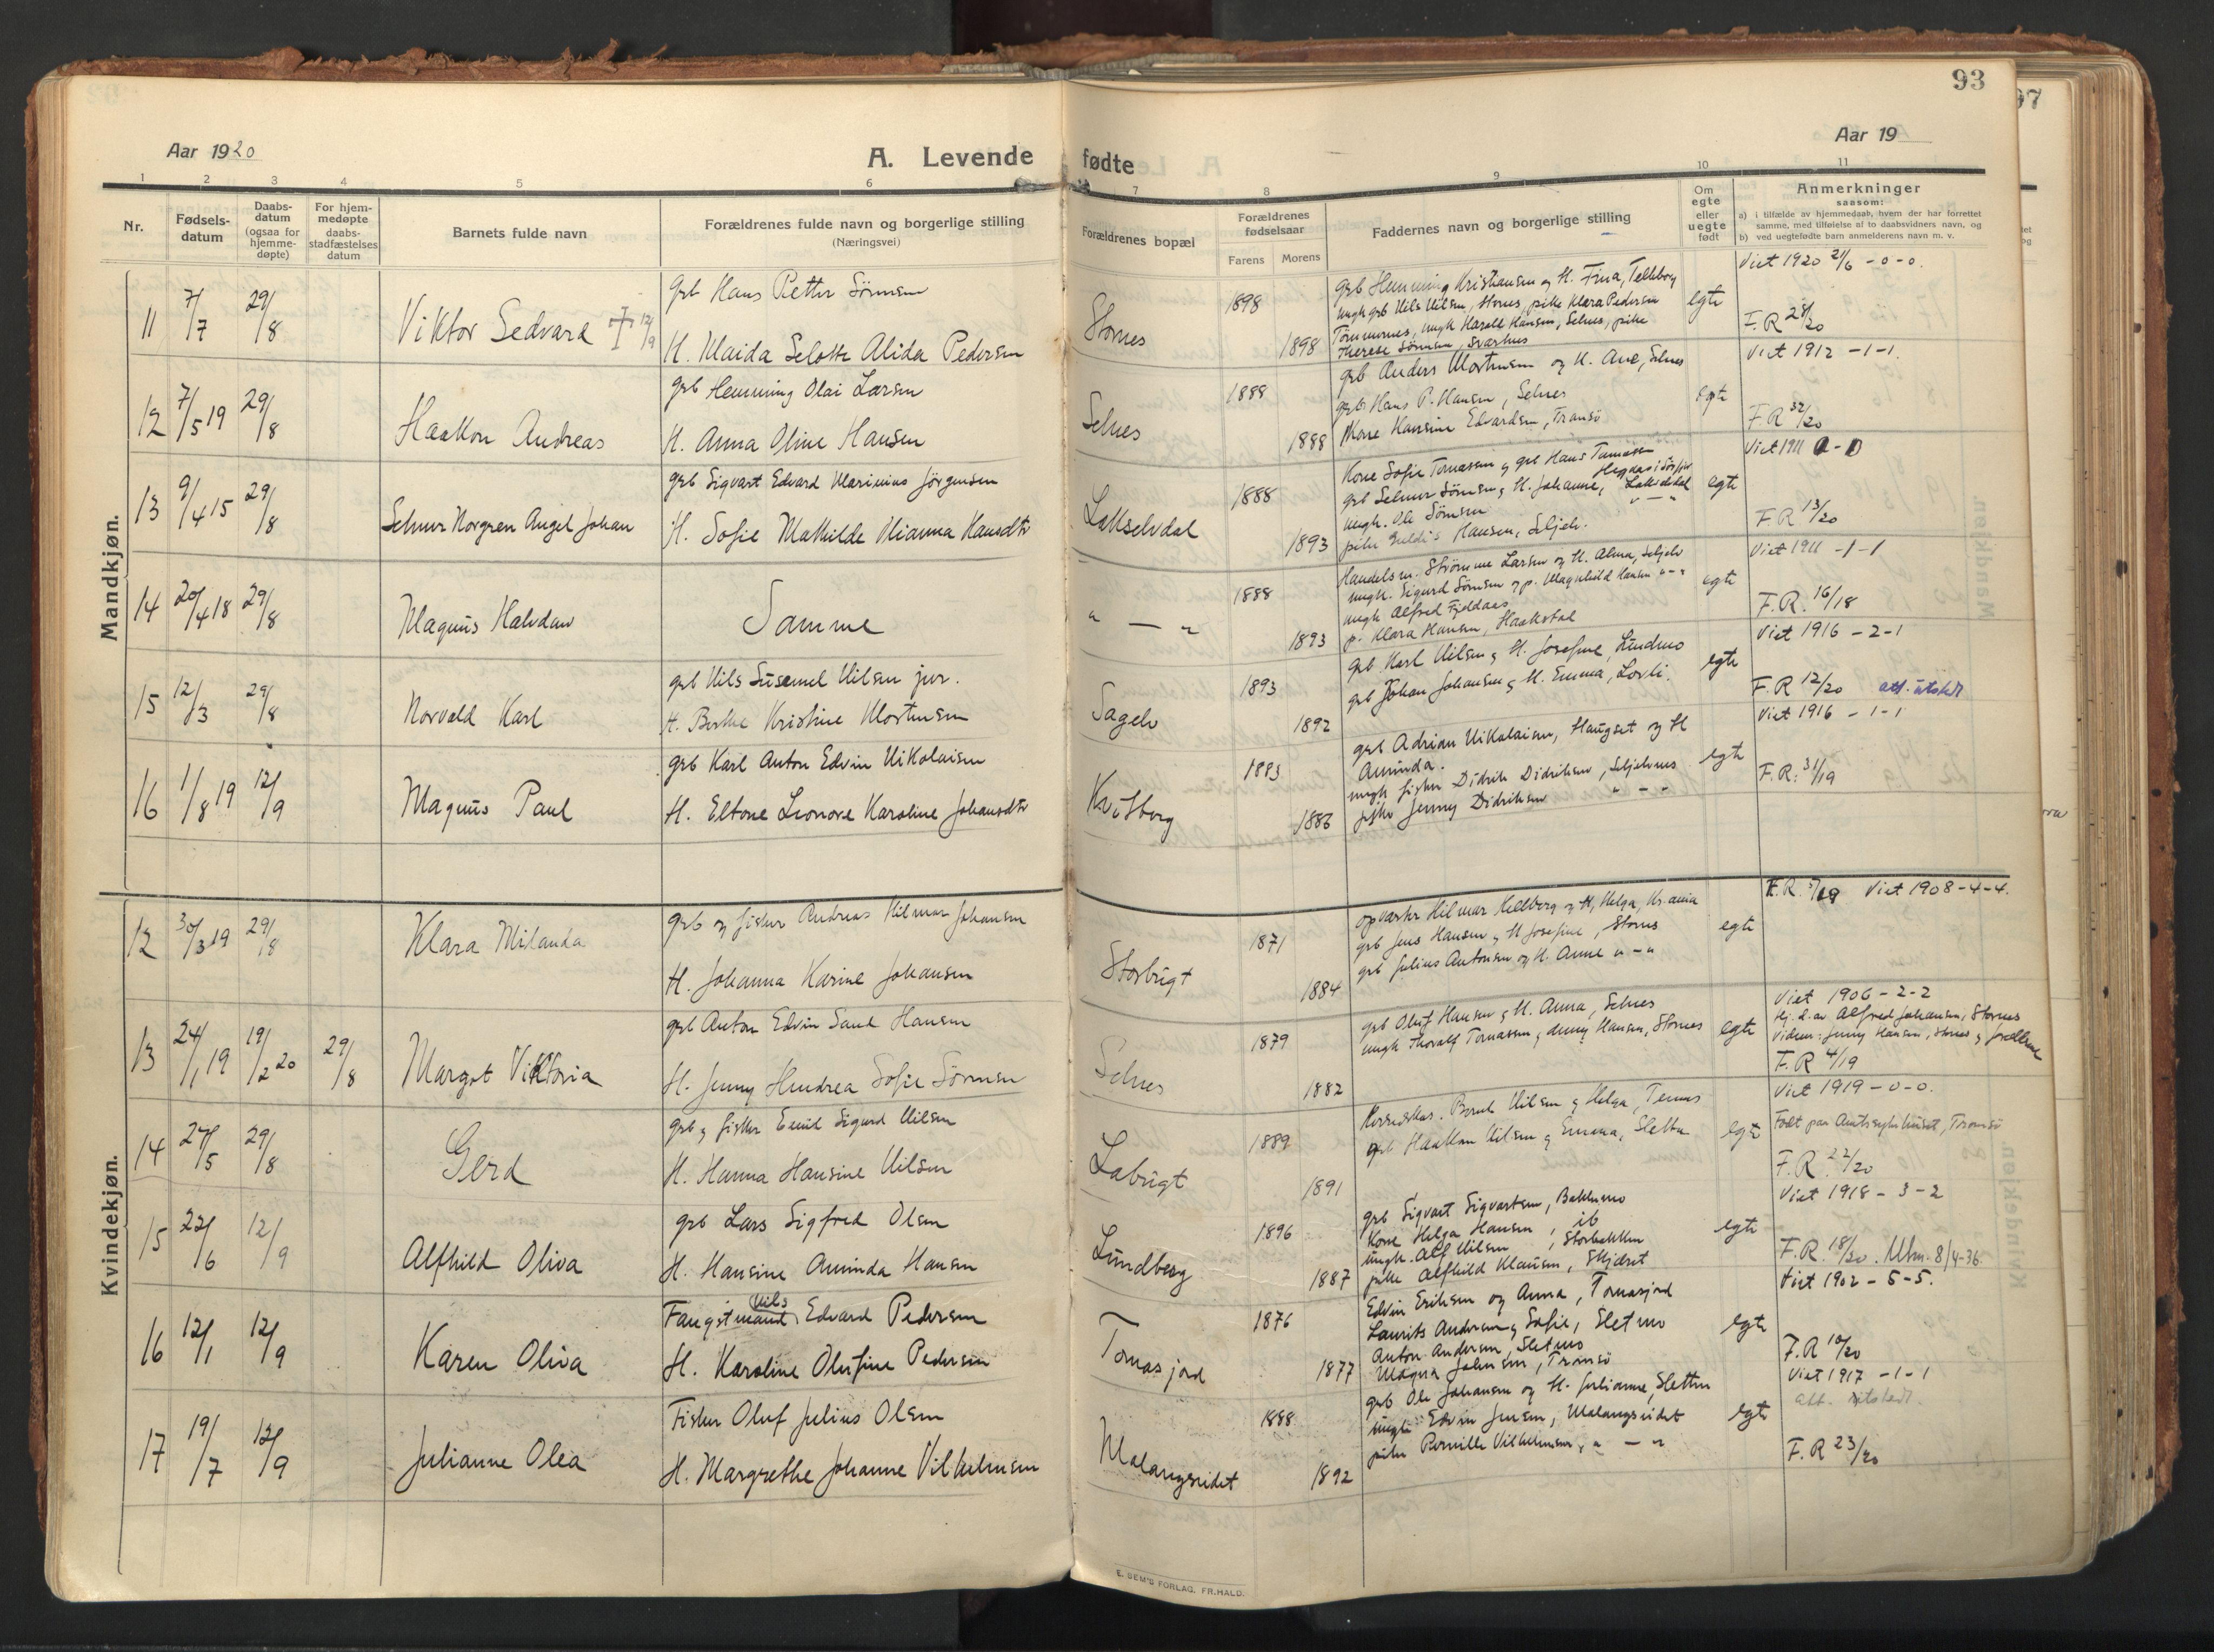 93
Aar 1920
A. Levende
fødte
Aar 19
1 2 3 4 5 6 7 8 9 10 11
Nr.
Fødsels-
datum
Daabs-
datum
(ogsaa for
hjemme-
døpte)
For hjem-
medøpte
daabs-
stadfæstelses
datum
Barnets fulde navn
Forældrenes fulde navn og borgerlige stilling
(Næringsvei)
Forældrenes bopæl
Forældrenes
fødselsaar
Farens Morens
Faddernes navn og borgerlige stilling
Om
egte
eller
uegte
født
Anmerkninger
saasom:
a) i tilfælde av hjemmedaab, hvem der har forrettet
samme, med tilføielse af to daabsvidners navn, og
b) ved uegtefødte barn anmelderens navn m. v.
Mandkjøn.
11 7/7 29/8 Viktor Sedvard 12/9
Grb Hans Petter Sörensen
H. Maida Selotte Alida Pedersen
Stornes 1898 1898
grb Henning Kristiansen og H. Fina,
ungk grb Nils Nilsen, Stornes, pike Klara Pedersen
Tömmernes, ungk Harald Hansen, Selnes, pike
Therese Sörensen, Svartnes
egte
Viet 1920 21/6 -0-0.
F.R 28/20
12 7/5 19 29/8 Haakon Andreas
grb Henning Olai Larsen
H. Anna Oline Hansen
Selnes 1888 1888
grb Anders Mortensen og H. Ane, Selnes
grb Hans P. Hansen, Selnes
Kone Hansine Edvardsen, Tromsö
egte
Viet 1912 -1-1.
F.R 32/20
13 9/4 15 29/8 Selmer Norgren Angel Johan
grb Sigvart Edvard Marinius Jörgensen
H. Sofie Mathilde Nianna Hansdtr
Lakselvdal 1888 1893
Kone Sofie Tomassen og grb Hans Tomassen
grb Selmer Sörensen og H. Johanne, Lakselvdal
ungk. Ole Sörensen " — "
pike Hansen, Seljelv.
egte
Viet 1911 0-0
F.R 13/20
14 20/4 18 29/8 Magnus Halvdan
Samme
" — " 1888 1893
Handelsm. Strömme Larsen og H. Alma, Seljelv
ungk. Sigurd Sörensen og p. Magnhild Hansen "-"
ungk Alfred Fjeldaas
p. Klara Hansen, Haakstad
egte
Viet 1911 -1-1
F.R. 16/18
15 12/3 29/8 Norvald Karl
grb Nils Susamel Nilsen jur.
H. Berthe Kristine Mortensen
Sagelv 1893 1892
grb Karl Nilsen og H. Josefine, Lindmo
grb Johan Johansen og H. Emma, Lovli.
egte
Viet 1916 -2-1
F.R 12/20 att. utstedt
16 1/8 19 12/9 Magnus Paul
grb Karl Anton Edvin Nikolaisen
H. Eltone Leonore Karoline Johansdtr
Kvitberg 1883 1886
grb Adrian Nikolaisen, Haugset og H
Aminda.
ungk fisker Didrik Didriksen, Seljelvnes
pike Jenny Didriksen " — "
egte
Viet 1916 -1-1
F.R. 31/19
Kvindekjøn.
12 30/3 19 29/8 Klara Milanda
grb og fisker Andreas Hilmar Johansen
H. Johanna Karine Johansen
Storbugt 1871 1884
opvarter Hilmar Kellberg og H, Helga, Kr.ania
grb Jens Hansen og H Josefine, Stornes
grb Julius Antonsen og H. Anne "-"
egte
F.R. 5/19 Viet 1908-4-4.
13 24/1 19 19/2 20 29/8 Margot Viktoria
grb Anton Edvin Saul Hansen
H. Jenny Hendrea Sofie Sörensen
Selnes 1879 1882
grb Oluf Hansen og H. Anna, Selnes
ungk Thoralf Tomassen og Anny Hansen, Stornes
egte
Viet 1906-2-2
Hj. d. av Alfred Johansen, Stornes
Vidner: Jenny Hansen, Stornes og foreldrene
F.R 4/19
14 27/5 29/8 Gerd
grb og fisker Emil Sigurd Nilsen
H. Hanna Hansine Nilsen
Labugt 1889 1891
Bernt Nilsen og Helga, Tennes
grb Haakon Nilsen og Emma, Sletta
egte
Viet 1919-0-0.
Födt paa Amtssykehuset, Tromsö
F.R. 22/20
15 22/6 12/9 Alfhild Oliva
grb Lars Sigfred Olsen
H. Hansine Aminda Hansen
Lundberg 1896 1887
grb Sigvart Sigvartsen, Bakkemo
Kone Helga Hansen, ib
ungk. Alf Nilsen, Storbakken
pike Alfhild Klausen, Skjäret
egte
Viet 1918-3-2
F.R. 18/20. Utm. 8/4-36
16 12/1 12/9 Karen Oliva
Fangstmand Nils Edvard Pedersen
H. Karoline Olufine Pedersen
Tomasjord 1876 1877
Edvin Eriksen og Anna, Tomasjord
Laurits Andersen og Sofie, Sletmo
Anton Andersen, Sletmo
Magna Johnsen, Tromsö
egte
Viet 1902-5-5.
F.R 10/20
17 19/7 12/9 Julianne Olea
Fisker Oluf Julius Olsen
H. Margrethe Johanne Vilhelmsen
Malangseidet 1888 1892
grb Ole Johansen og H. Julianne, Sletten
ungk Edvin Jensen, Malangseidet
pike Pernille Vilhelmsen, " — "
egte
Viet 1917 -1-1
att. utstedt.
F.R 23/20
E. SEM'S FORLAG, FR.HALD.